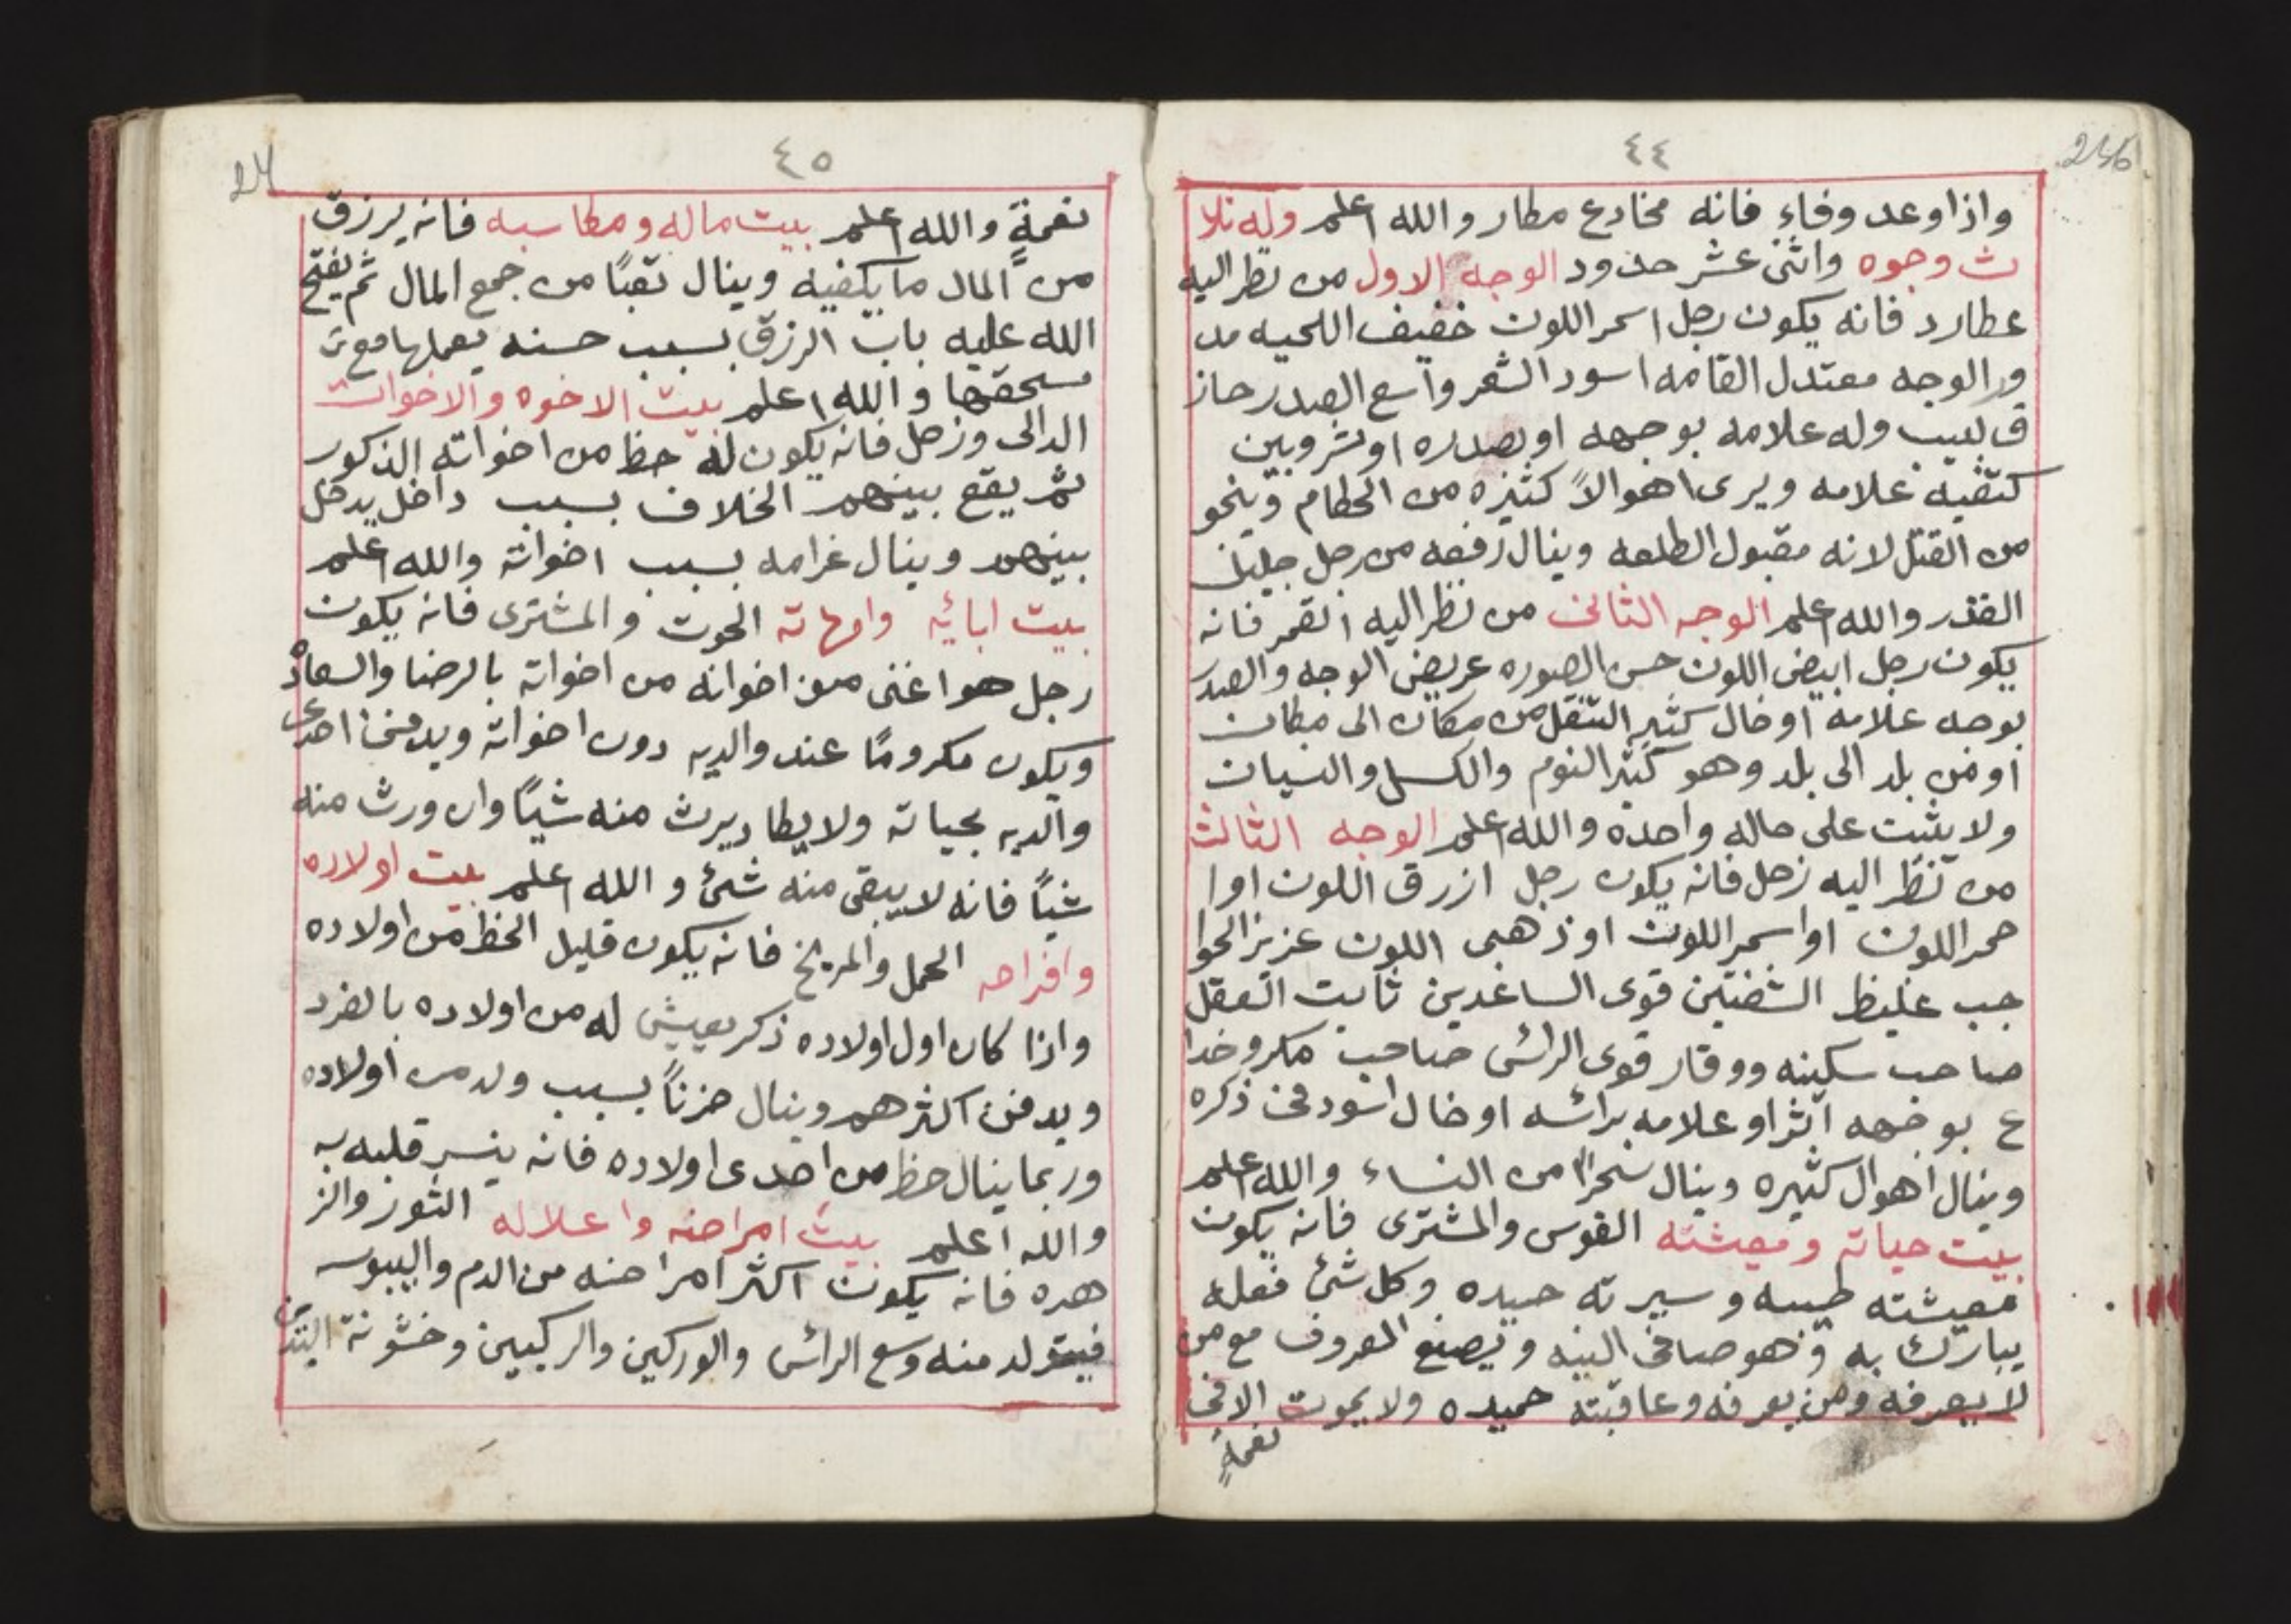 ٤٤
246
واذا وعد وفاءٍ فانه مخادع مكار والله اعلم وله ثلا
ث وجوه واثنى عشر حدود الوجه الاول من نظر اليه
عطارد فانه يكون رجل اسمر اللون خفيف اللحيه مد
ور الوجه معتدل القامه اسود الشعر واسع الصدر حاز
ق لبيب وله علامه بوجهه او بصدره او تشر وبين
كتفيه علامه ويرى اهوالاً كثيره من الحكام وينجو
من القتل لانه مقبول الطلعه وينال رفعه من رجل جليل
القدر والله اعلم الوجه الثانى من نظر اليه القمر فانه
يكون رجل ابيض اللون حسن الصوره عريض الوجه والصدر
بوجه علامه او خال كثير التنقل من مكان الى مكان
او من بلد الى بلد وهو كثير النوم والكسل والنسيان
ولا يثبت على حاله واحده والله اعلم الوجه الثالث
من نظر اليه زحل فانه يكون رجل ازرق اللون او ا
حمر اللون او اسمر اللون او ذهبى اللون عزيز الحوا
جب غليظ الشفتين قوى الساعدين ثابت العقل
صاحب سكينه ووقار قوى الرائس صاحب مكر وخدا
ع بوجهه اثر او علامه برائسه او خال اسود فى ذكره
وينال اهوال كثيره وينال سحراً من النساء والله اعلم
بيت حياته ومعيشته القوس والمشترى فانه يكون
معيشته طيبه وسيرته حميده وكل شئ فعله
يبارك به وهو صافى النيه ويصنع المعروف مع من
لا يعرفه ومن يعرفه وعاقبته حميده ولا يموت الا فى
نعمةٍ
٤٥
نعمةٍ والله اعلم بيت ماله ومكاسبه فانه يرزق
من المال ما يكفيه وينال تعبًا من جمع المال ثم يفتح
الله عليه باب الرزق بسبب حسنه يعملها مع من
يستحقها والله اعلم بيت الاخوه والاخوات
الدالى وزحل فانه يكون له حظ من اخواته الذكور
ثم يقع بينهم الخلاف بسبب داخل يدخل
بينهم وينال غرامه بسبب اخواته والله اعلم
بيت ابائه وامهاته الحوت والمشترى فانه يكون
رجل هو اغنى من اخوانه من اخواته بالرضا والسعاده
ويكون مكرومًا عند والديه دون اخواته ويدفن احدى
والديه بحياته ولا يكاد يرث منه شيًا وان ورث منه
شيًا فانه لا يبقى منه شئ والله اعلم بيت اولاده
وافراحه الحمل والمريخ فانه يكون قليل الحظ من اولاده
واذا كان اول اولاده ذكر يعيش له من اولاده بالفرد
ويدفن اكثرهم وينال حزنًا بسبب ولد من اولاده
وربما ينال حظ من احدى اولاده فانه ينسر قلبه به
والله اعلم بيت امراضه واعلاله الثور والز
هره فانه يكون اكثر امراضه من الدم واليبوسه
فيتولد منه وسع الرائس والوركين والركبين وخشونة اليدين